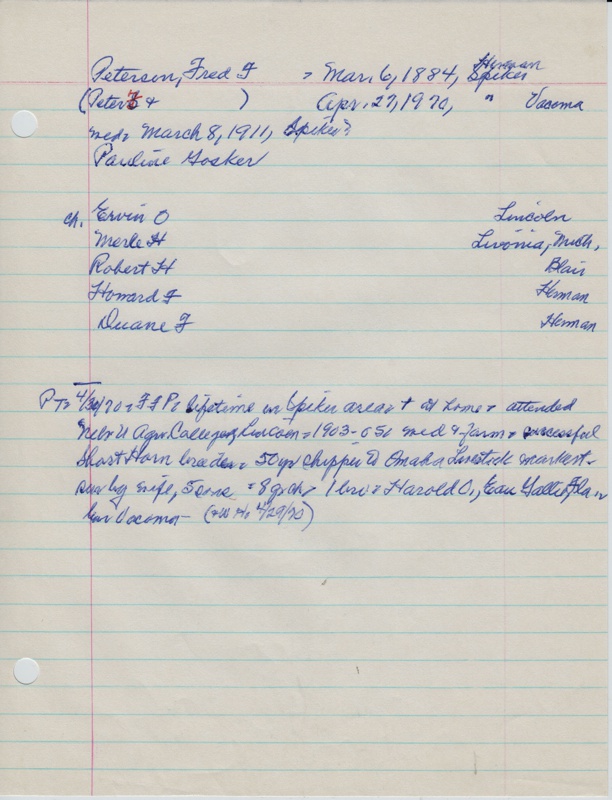 Herman
Peterson, Fred F - Mar. 6, 1884, Spiker
(Peter F & ) Apr. 27, 1970, " Vacoma
med - March 8, 1911, Spiker?
Pauline Gosker
ch. Ervin O Lincoln
Merle H Livonia, Mich.
Robert H Blair
Howard F Herman
Duane F Herman
PT - 4/30/70 - F F P - lifetime in Spiker area + at home + attended
Nebr U Agr College, Lincoln - 1903-05 med & farm + successful
Short Horn breeder - 50 yr shipper to Omaha Livestock market -
sur by wife, 5 sons - 8 grch - 1 bro - Harold O., Eau Gallie Fla -
bur Vacoma - ( 4/29/70)